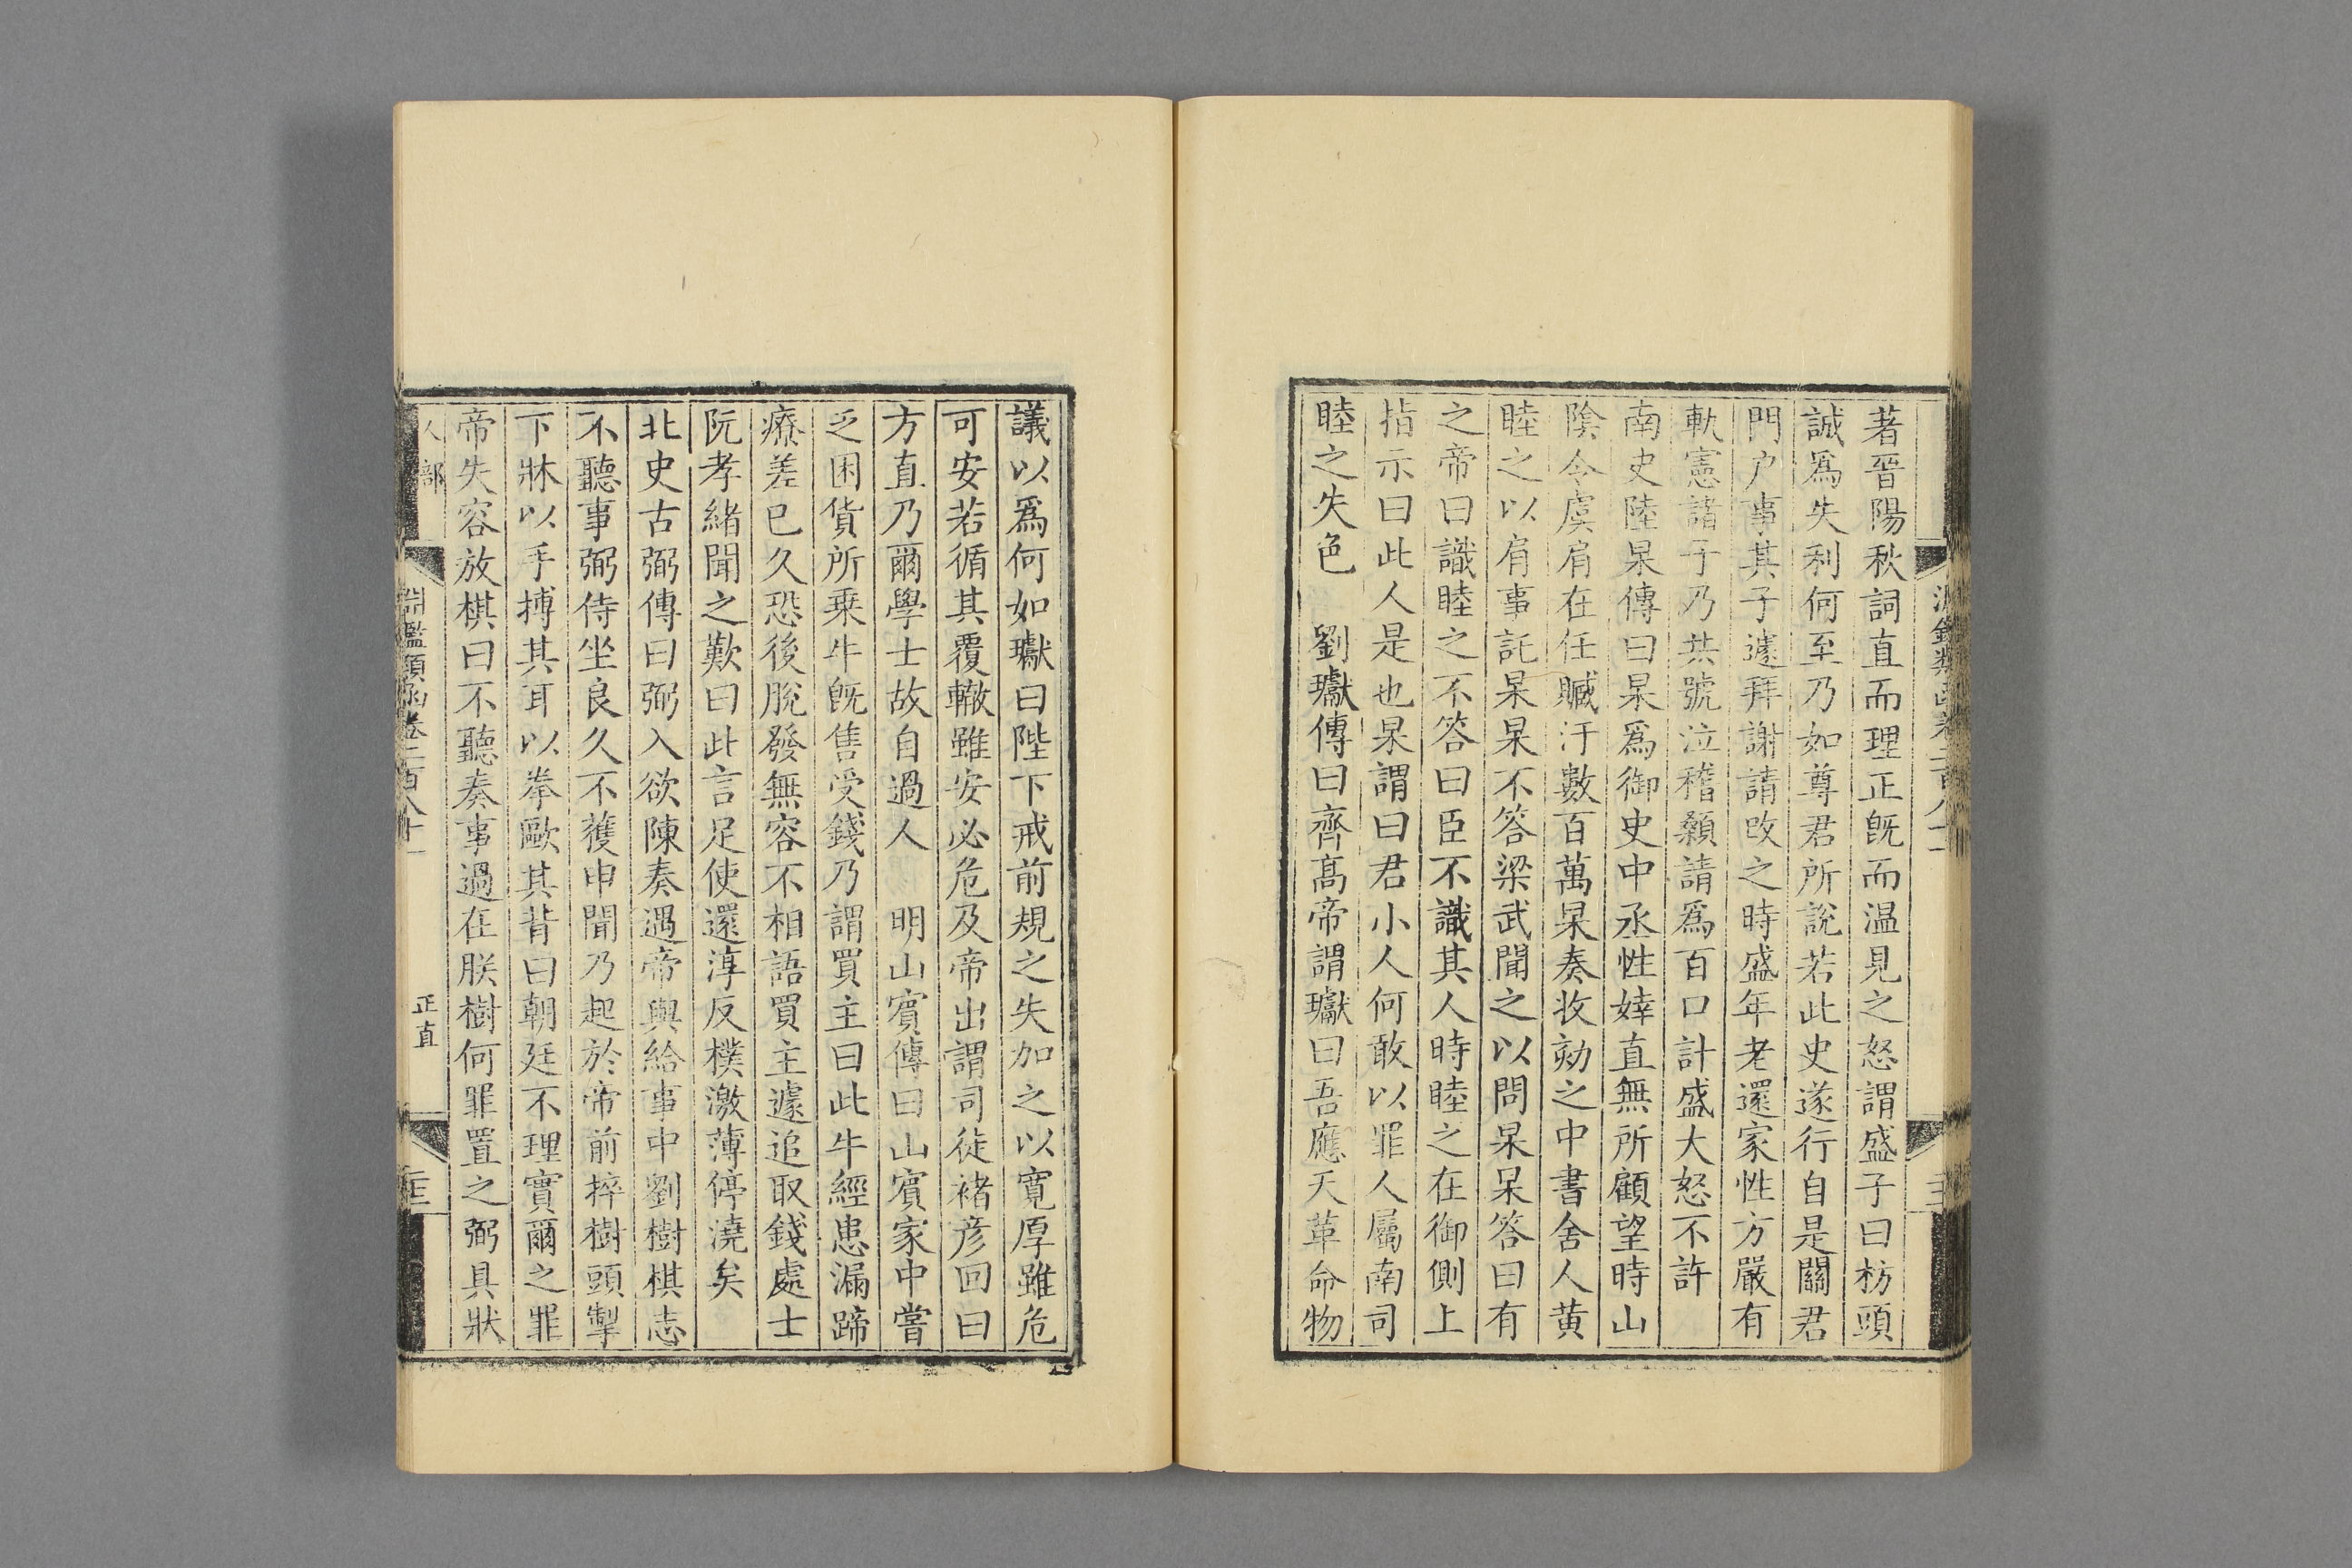 著晉陽秋詞直而理正旣而温見之怒謂盛子曰枋頭
誠爲失利何至乃如尊君所說若此史遂行自是關君
門户事其子遽拜謝請改之時盛年老還家性方嚴有
軌憲諸子乃共號泣稽顙請爲百口計盛大怒不許
南史陸杲傳曰杲爲御史中丞性婞直無所顧望時山
陰令虞肩在任贓汙數百萬杲奏收劾之中書舍人黄
睦之以肩事託杲杲不答梁武聞之以問杲杲答曰有
之帝曰識睦之不答曰臣不識其人時睦之在御側上
指示曰此人是也杲謂曰君小人何敢以罪人屬南司
睦之失色　劉瓛傳曰齊高帝謂瓛曰吾應天革命物
議以爲何如瓛曰陛下戒前規之失加之以寬厚雖危
可安若循其覆轍雖安必危及帝出謂司徒褚彦回曰
方直乃爾學士故自過人　明山賓傳曰山賓家中嘗
乏困貨所乗牛旣售受錢乃謂買主曰此牛經患漏蹄
療差已久恐後脫發無容不相語買主遽追取錢處士
阮孝緒聞之歎曰此言足使還淳反樸激薄停澆矣
北史古弼傳曰弼入欲陳奏遇帝與給事中劉樹棋志
不聽事弼侍坐良久不獲申聞乃起於帝前捽樹頭掣
下牀以手搏其耳以拳歐其背曰朝廷不理實爾之罪
帝失容放棋曰不聽奏事過在朕樹何罪置之弼具狀
人部
淵鑑類函卷二百八十一
正直